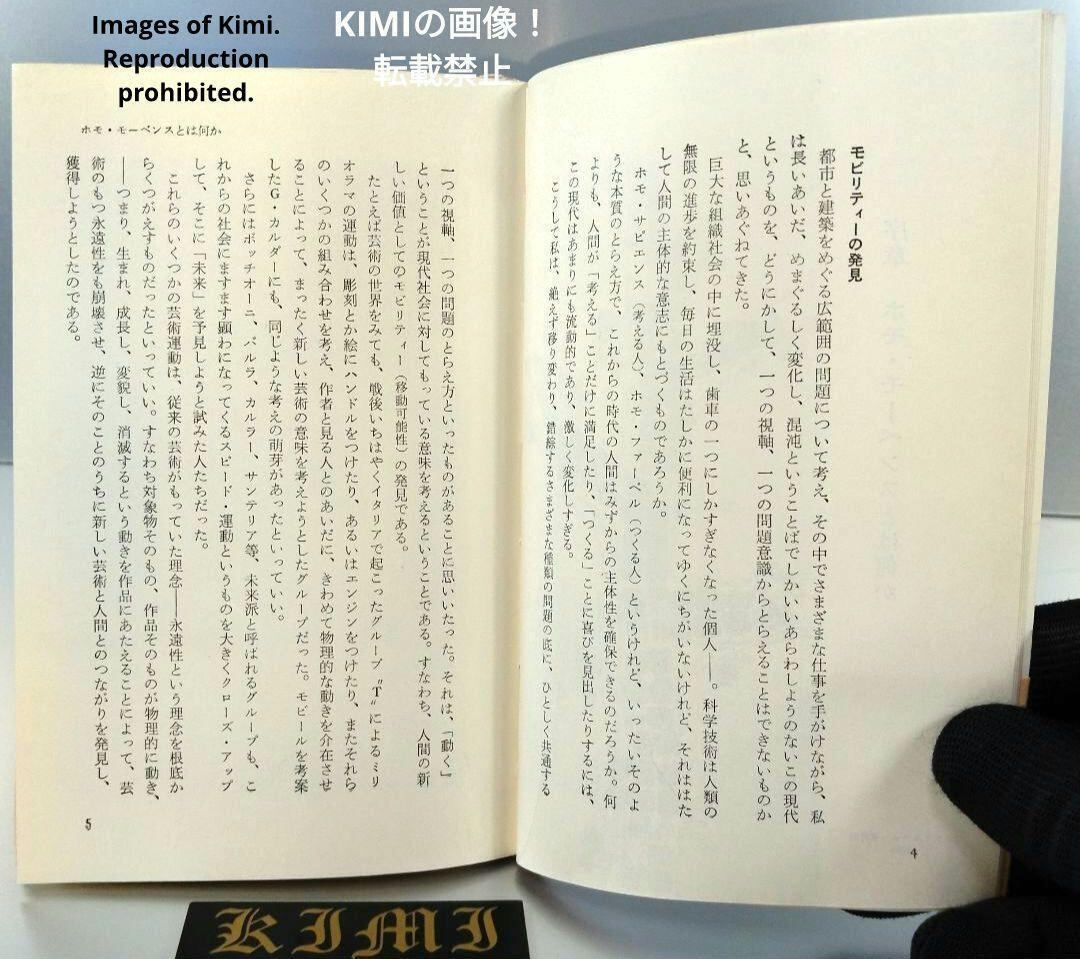 Images of Kimi.
Reproduction
prohibited.
KIMIの画像！
転載禁止
モビリティーの発見
都市と建築をめぐる広範囲の問題について考え、その中でさまざまな仕事を手がけながら、私
は長いあいだ、めまぐるしく変化し、混沌ということばでしかいいあらわしようのないこの現代
というものを、どうにかして、一つの視軸、一つの問題意識からとらえることはできないものか
と、思いあぐねてきた。
巨大な組織社会の中に埋没し、歯車の一つにしかすぎなくなった個人――。科学技術は人類の
無限の進歩を約束し、毎日の生活はたしかに便利になってゆくにちがいないけれど、それははた
して人間の主体的な意志にもとづくものであろうか。
ホモ・サピエンス（考える人）、ホモ・ファーベル（つくる人）というけれど、いったいそのよ
うな本質のとらえ方で、これからの時代の人間はみずからの主体性を確保できるのだろうか。何
よりも、人間が「考える」ことだけに満足したり、「つくる」ことに喜びを見出したりするには、
この現代はあまりにも流動的であり、激しく変化しすぎる。
こうして私は、絶えず移り変わり、錯綜するさまざまな種類の問題の底に、ひとしく共通する
4
ホモ・モーベンスとは何か
一つの視軸、一つの問題のとらえ方といったものがあることに思いいたった。それは、「動く」
ということが現代社会に対してもっている意味を考えるということである。すなわち、人間の新
しい価値としてのモビリティー（移動可能性）の発見である。
たとえば芸術の世界をみても、戦後いちはやくイタリアで起こったグループ〝T〟によるミリ
オラマの運動は、彫刻とか絵にハンドルをつけたり、あるいはエンジンをつけたり、またそれら
のいくつかの組み合わせを考え、作者と見る人とのあいだに、きわめて物理的な動きを介在させ
ることによって、まったく新しい芸術の意味を考えようとしたグループだった。モビールを考案
したG・カルダーにも、同じような考えの萌芽があったといっていい。
さらにはボッチオーニ、バルラ、カルラー、サンテリア等、未来派と呼ばれるグループも、こ
れからの社会にますます顕わになってくるスピード・運動というものを大きくクローズ・アップ
して、そこに「未来」を予見しようと試みた人たちだった。
これらのいくつかの芸術運動は、従来の芸術がもっていた理念――永遠性という理念を根底か
らくつがえすものだったといっていい。すなわち対象物そのもの、作品そのものが物理的に動き、
――つまり、生まれ、成長し、変貌し、消滅するという動きを作品にあたえることによって、芸
術のもつ永遠性をも崩壊させ、逆にそのことのうちに新しい芸術と人間とのつながりを発見し、
獲得しようとしたのである。
5
KIMI